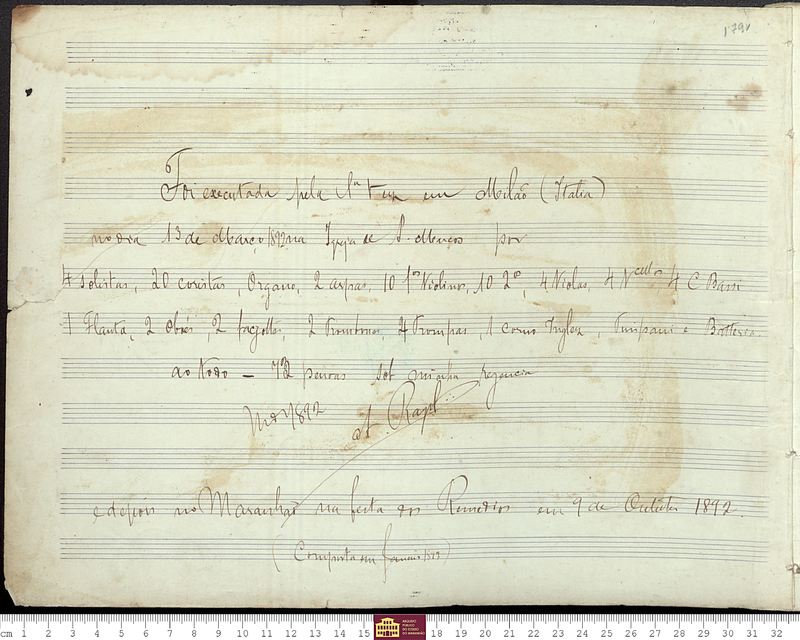 Foi executada pela 1ª vez em Milão (Italia)
no dia 13 de Março 1892 na Igreja de S. Marcos por
4 solistas, 20 coristas, Organo, 2 arpas, 10 1os Violinos, 10 2os, 4 Violas, 4 Vcellos 4 C Bassi
1 Flauta, 2 Oboes, 2 fagottes, 2 Trombones, 4 Trompas, 1 corno Inglez, Timpani e Batteria.
ao todo – 72 pessoas sob minha regencia
1892
e depois no Maranhão na festa dos Remedios em 9 de Outubro 1892.
(Composta em Janeiro
ARQUIVO PÚBLICO DO ESTADO DO MARANHÃO
cm 1 2 3 4 5 6 7 8 9 10 11 12 13 14 15 18 19 20 21 22 23 24 25 26 27 28 29 30 31 32